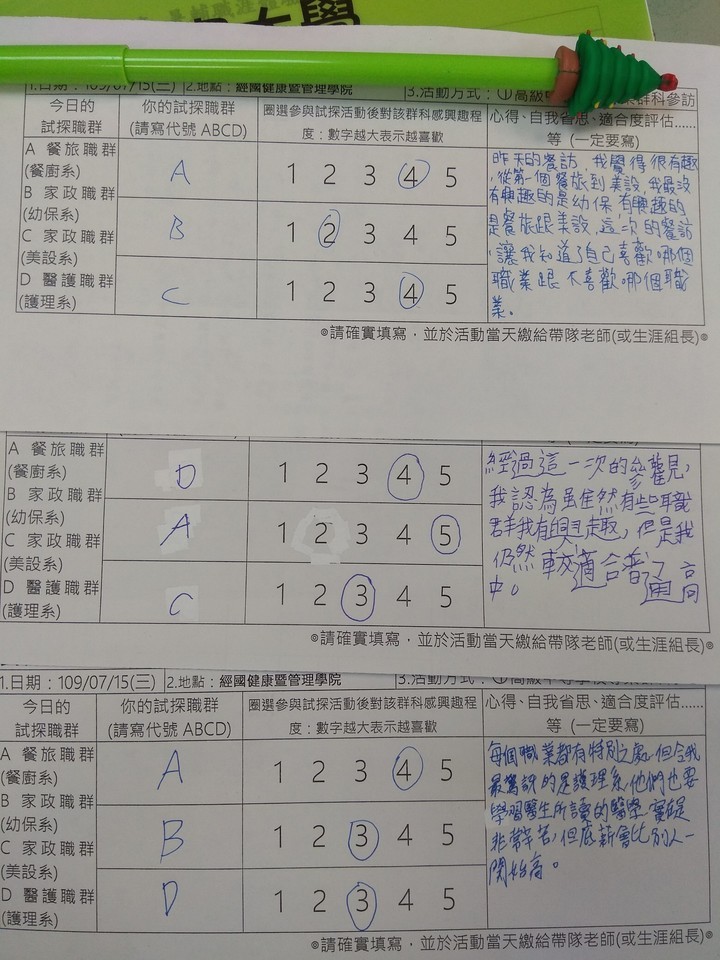 1.日期：109/07/15(三) 2.地點：經國健康暨管理學院 3.活動方式：①高級中 群科參訪
今日的試探職群
你的試探職群(請寫代號 ABCD)
圈選參與試探活動後對該群科感興趣程度：數字越大表示越喜歡
心得、自我省思、適合度評估……等 (一定要寫)
A 餐旅職群
(餐廚系)
B 家政職群
(幼保系)
C 家政職群
(美設系)
D 醫護職群
(護理系)
A 1 2 3 4 5
B 1 2 3 4 5
C 1 2 3 4 5
昨天的餐訪，我覺得很有趣
，從第一個餐旅到美設，我最沒
有興趣的是幼保，有興趣的
是餐旅跟美設，這次的餐訪
，讓我知道了自己喜歡哪個
職業跟不喜歡哪個職
業。
◎請確實填寫，並於活動當天繳給帶隊老師(或生涯組長)◎
A 餐旅職群
(餐廚系)
B 家政職群
(幼保系)
C 家政職群
(美設系)
D 醫護職群
(護理系)
D 1 2 3 4 5
A 1 2 3 4 5
C 1 2 3 4 5
經過這一次的參觀，
我認為雖然有些職
群我有興趣，但是我
仍然較適合普通高
中。
◎請確實填寫，並於活動當天繳給帶隊老師(或生涯組長)◎
1.日期：109/07/15(三) 2.地點：經國健康暨管理學院 3.活動方式：①高級中等學校
今日的試探職群
你的試探職群(請寫代號 ABCD)
圈選參與試探活動後對該群科感興趣程度：數字越大表示越喜歡
心得、自我省思、適合度評估……等 (一定要寫)
A 餐旅職群
(餐廚系)
B 家政職群
(幼保系)
C 家政職群
(美設系)
D 醫護職群
(護理系)
A 1 2 3 4 5
B 1 2 3 4 5
D 1 2 3 4 5
每個職業都有特別之處，但令我
最驚訝的是護理系，他們也要
學習醫生所讀的醫學，實在是
非常辛苦，但底薪會比別人一
開始高。
◎請確實填寫，並於活動當天繳給帶隊老師(或生涯組長)◎